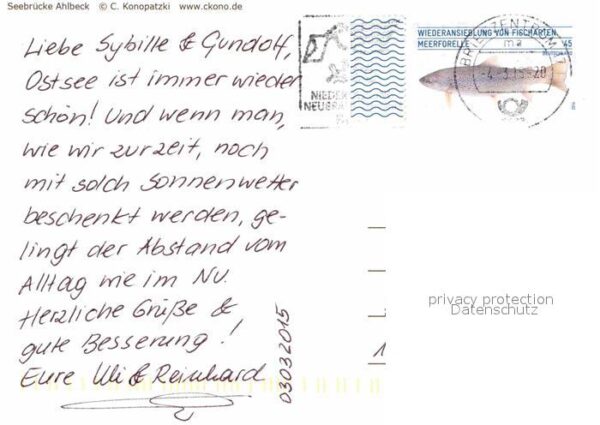 Seebrücke Ahlbeck © C. Konopatzki www.ckono.de
Liebe Sybille & Gundolf,
Ostsee ist immer wieder
schön! Und wenn man,
wie wir zurzeit, noch
mit solch Sonnenwetter
beschenkt werden, ge-
lingt der Abstand vom
Alltag wie im NU.
Herzliche Grüße &
gute Besserung!
Eure Uli & Reinhard
03032015
WIEDERANSIEDLUNG VON FISCHARTEN
MEERFORELLE
45
BRIEFZENTRUM
ma
NIEDER
privacy protection
Datenschutz
1